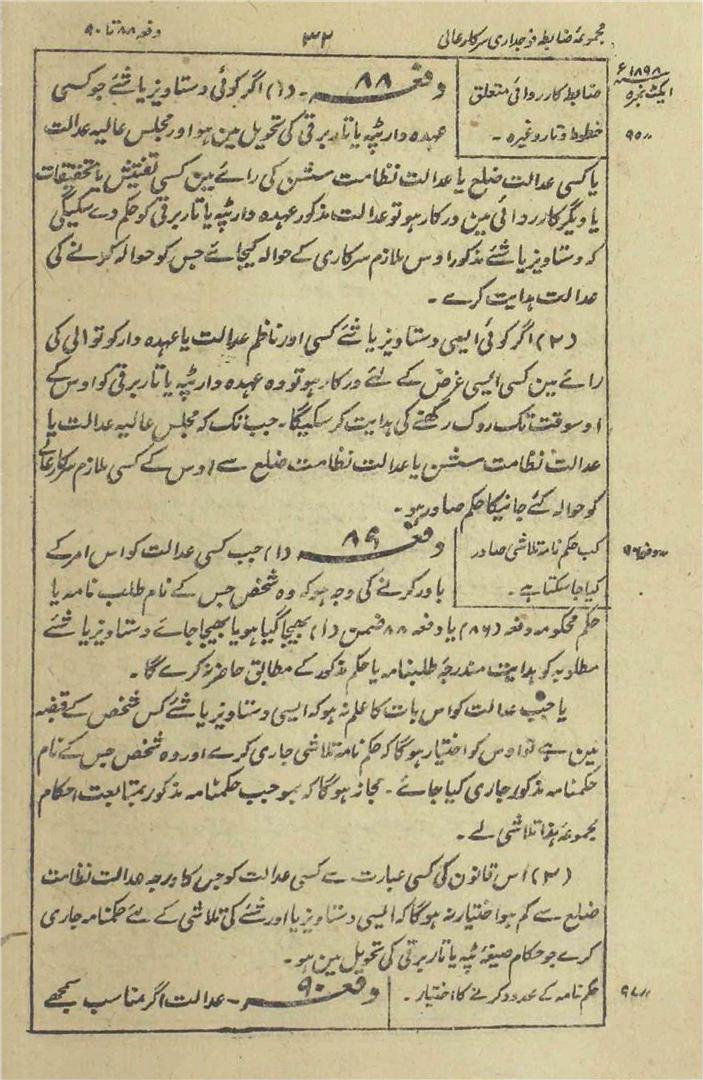 مجموعۂ ضابطہ فوجداری سرکار عالی
۳۲
دفعہ ۸۸ تا ۹۰
۱۸۹۸ء
ایکٹ نمبر ۵
ضابطہ کارروائی متعلق
خطوط و تار وغیرہ ۔
۹۵ ״
دفعہ ۸۸ ۔ (۱) اگر کوئی دستاویز یا شئے جو کسی
عہدہ دار ٹپہ یا تار برقی کی تحویل مین ہو اور مجلس عالیہ عدالت
یا کسی عدالت ضلع یا عدالت نظامت سشن کی رائے مین کسی تفتیش یا تحقیقات
یا دیگر کارروائی مین درکار ہو تو عدالت مذکور عہدہ دار ٹپہ یا تار برقی کو حکم دے سکیگی
کہ دستاویز یا شئے مذکور اوس ملازم سرکاری کے حوالہ کیجائے جس کو حوالہ کرنے کی
عدالت ہدایت کرے ۔
(۲) اگر کوئی ایسی دستاویز یا شئے کسی اور ناظم عدالت یا عہدہ دار کوتوالی کی
رائے مین کسی ایسی غرض کے لئے درکار ہو تو وہ عہدہ دار ٹپہ یا تار برقی کو اوس کے
اوسوقت تک روک رکھنے کی ہدایت کر سکیگا ۔ جب تک کہ مجلس عالیہ عدالت یا
عدالت نظامت سشن یا عدالت نظامت ضلع سے اوس کے کسی ملازم سرکار عالی
کو حوالہ کئے جانیکا حکم صادر ہو ۔
کب حکم نامہ تلاشی صادر
کیا جا سکتا ہے ۔
دفعہ ۹۶
دفعہ ۸۹ (۱) جب کسی عدالت کو اس امر کے
باور کرنے کی وجہ ہو کہ وہ شخص جس کے نام طلب نامہ یا
حکم محکومہ دفعہ (۸۶) یا دفعہ ۸۸ ضمن (۱) بھیجا گیا ہو یا بھیجا جائے دستاویز یا شئے
مطلوبہ کو ہدایت مندرجۂ طلبنامہ یا حکم مذکور کے مطابق حاضر نہ کرے گا ۔
یا جب عدالت کو اس بات کا علم نہ ہو کہ ایسی دستاویز یا شئے کس شخص کے قبضہ
مین ہے تو اوس کو اختیار ہوگا کہ حکم نامہ تلاشی جاری کرے اور وہ شخص جس کے نام
حکمنامہ مذکور جاری کیا جائے ۔ مجاز ہوگا کہ بموجب حکمنامہ مذکور بمتابعت احکام
مجموعۂ ہذا تلاشی لے ۔
(۳) اس قانون کی کسی عبارت سے کسی عدالت کو جس کا درجہ عدالت نظامت
ضلع سے کم ہو اختیار نہ ہوگا کہ ایسی دستاویز یا اور شئے کی تلاشی کے لئے حکمنامہ جاری
کرے جو حکام صیغۂ ٹپہ یا تار برقی کی تحویل مین ہو ۔
حکم نامہ کے محدود کرنے کا اختیار ۔
۹۷ ״
دفعہ ۹۰ ۔ عدالت اگر مناسب سمجھے